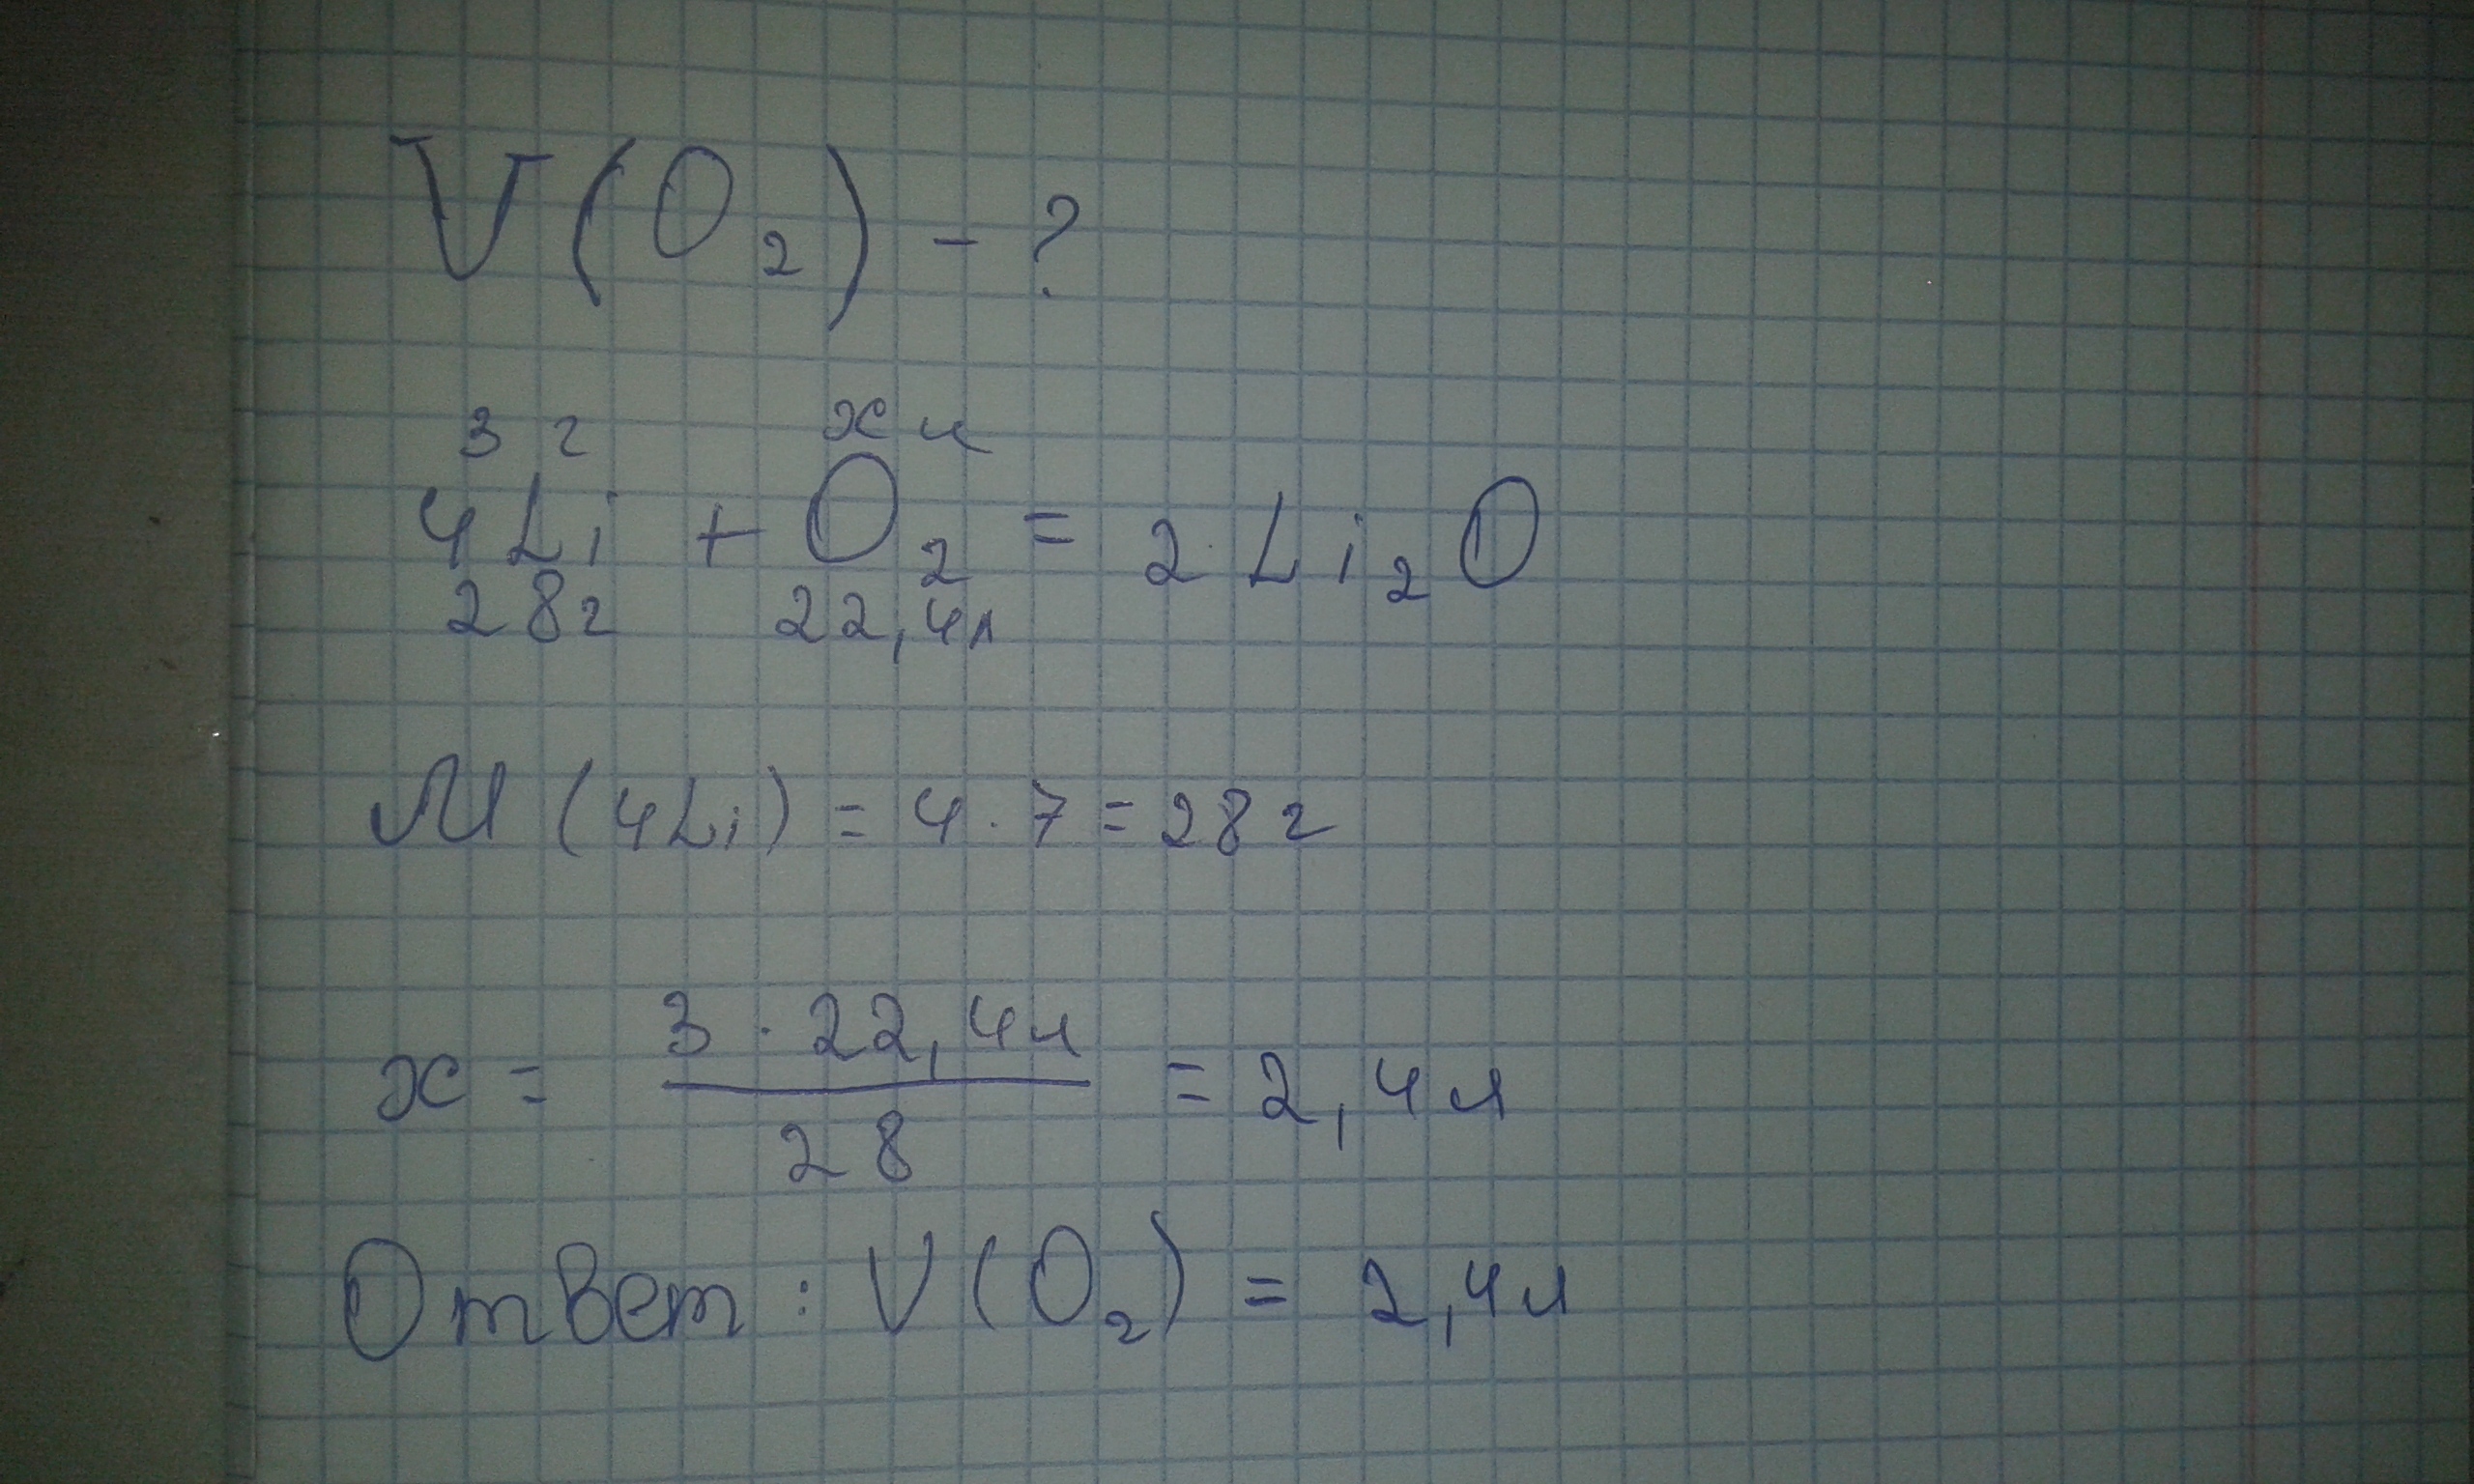 V(O₂) - ?
3 г x л
4Li + O₂ = 2Li₂O
28г 22,4л
M (4Li) = 4 · 7 = 28 г
x = 3 · 22,4л / 28 = 2,4 л
Ответ : V(O₂) = 2,4л